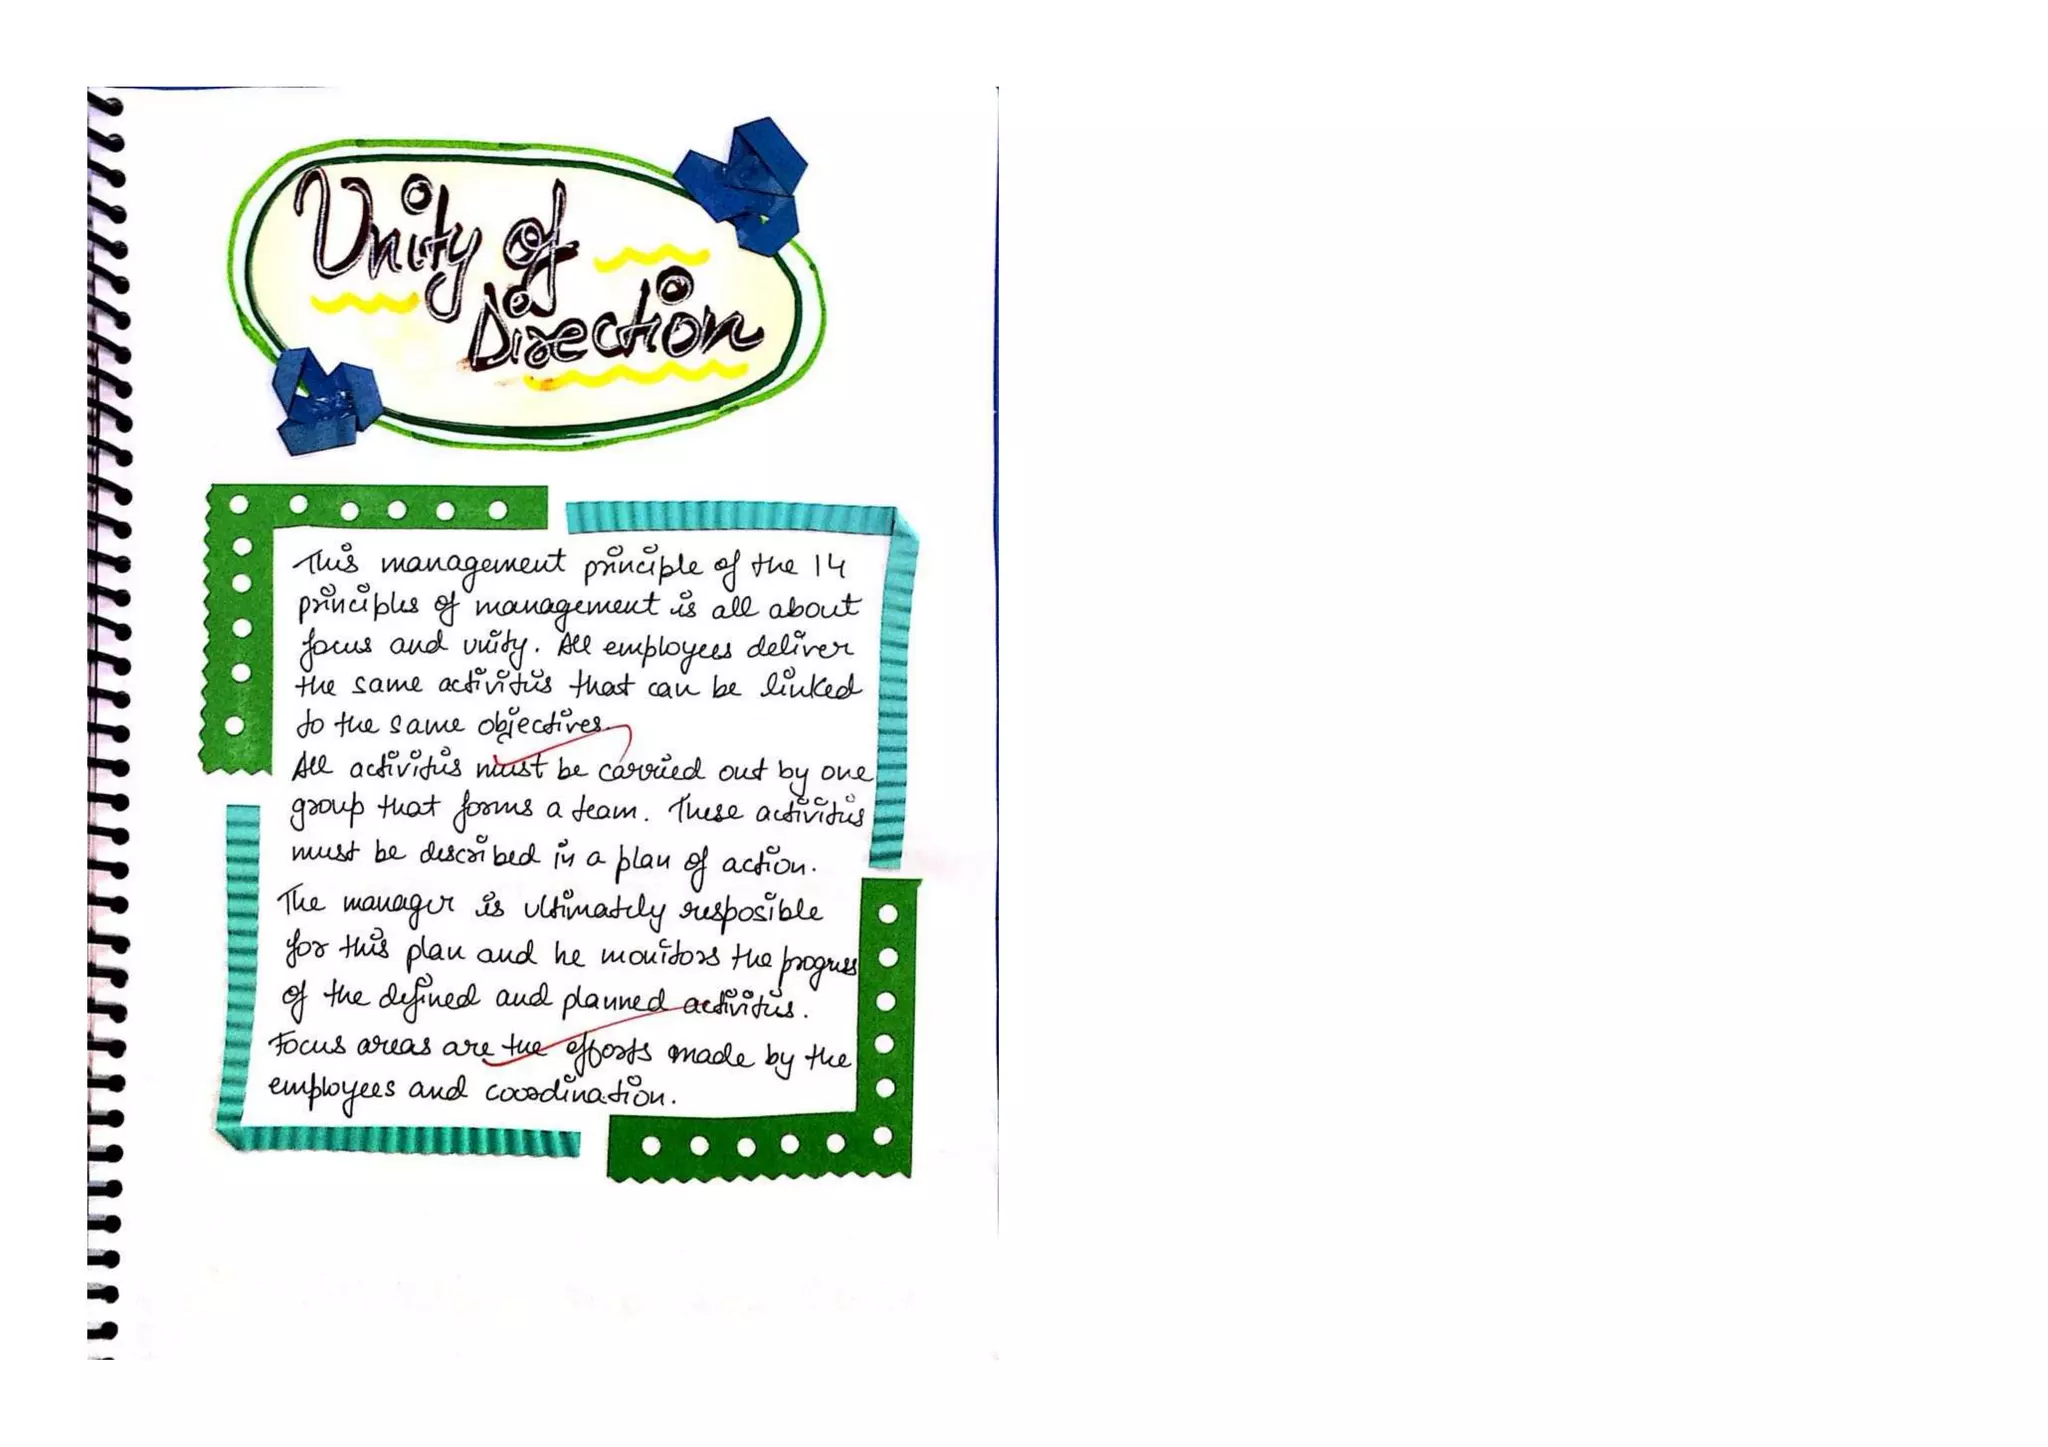 Unity of
Direction
This management principle of the 14
principles of management is all about
focus and unity. All employees deliver
the same activities that can be linked
to the same objectives.
All activities must be carried out by one
group that forms a team. These activities
must be described in a plan of action.
The manager is ultimately resposible
for this plan and he monitors the progress
of the defined and planned activities.
Focus areas are the efforts made by the
employees and coordination.